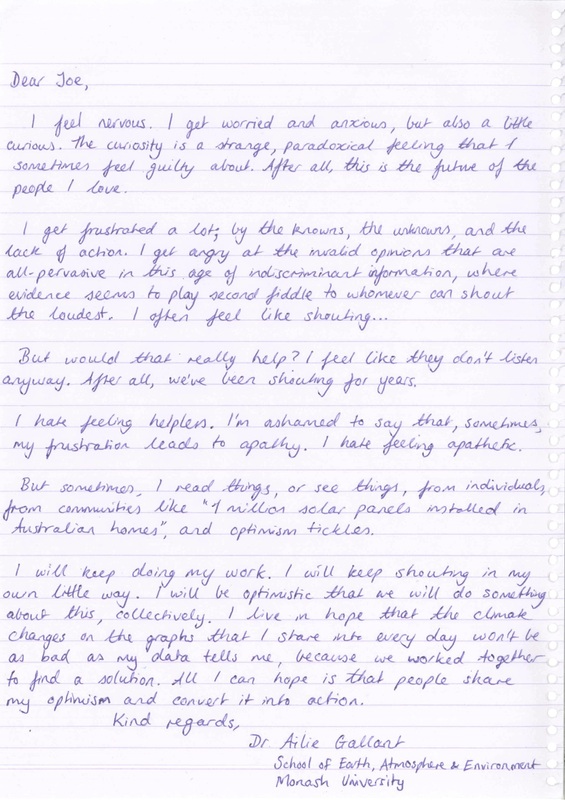 Dear Joe,
I feel nervous. I get worried and anxious, but also a little
curious. The curiosity is a strange, paradoxical feeling that I
sometimes feel guilty about. After all, this is the future of the
people I love.
I get frustrated a lot; by the knowns, the unknowns, and the
lack of action. I get angry at the invalid opinions that are
all-pervasive in this age of indiscriminant information, where
evidence seems to play second fiddle to whomever can shout
the loudest. I often feel like shouting...
But would that really help? I feel like they don't listen
anyway. After all, we've been shouting for years.
I hate feeling helpless. I'm ashamed to say that, sometimes,
my frustration leads to apathy. I hate feeling apathetic.
But sometimes, I read things, or see things, from individuals,
from communities like "1 million solar panels installed in
Australian homes", and optimism tickles.
I will keep doing my work. I will keep shouting in my
own little way. I will be optimistic that we will do something
about this, collectively. I live in hope that the climate
changes on the graphs that I stare into every day won't be
as bad as my data tells me, because we worked together
to find a solution. All I can hope is that people share
my optimism and convert it into action.
Kind regards,
Dr. Ailie Gallant
School of Earth, Atmosphere & Environment
Monash University